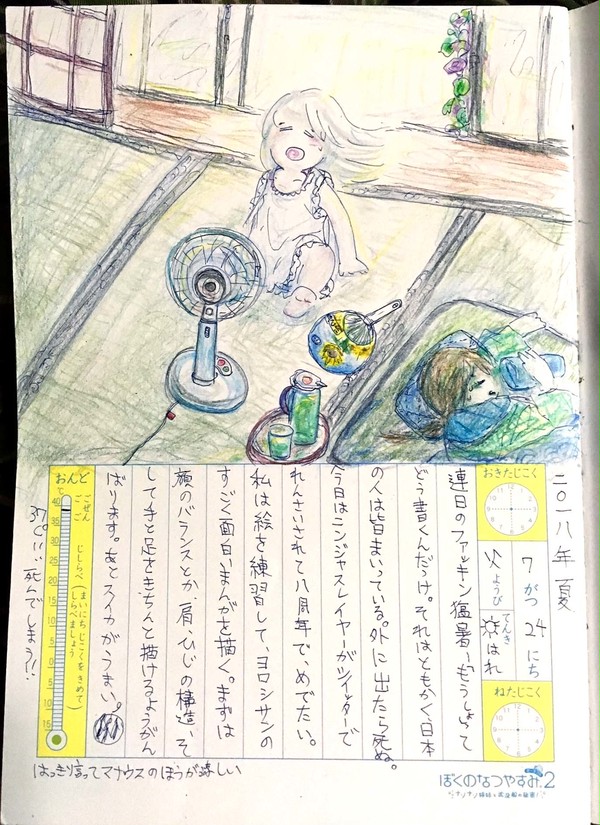 二〇一八年 夏
おきたじこく
7がつ24にち
火ようび
てんき
はれ
ねたじこく
連日のファッキン猛暑…「もうしょ」って
どう書くんだっけ。それはともかく、日本
の人は皆まいっている。外に出たら死ぬ。
今日はニンジャスレイヤーがツイッターで
れんさいされて八周年で、めでたい。
私は絵を練習して、ヨロシサンの
すごく面白いまんがを描く。まずは
顔のバランスとか、肩、ひじの構造、そ
して手と足をきちんと描けるようがん
ばります。あとスイカがうまい。
おんど
℃
ごぜん
ごご
じ
しらべ
(まいにち じこくをきめて しらべましょう)
40
35
30
25
20
15
10
5
0
37℃!!、死んでしまう!!
はっきり言ってマナウスのほうが涼しい
ぼくのなつやすみ2